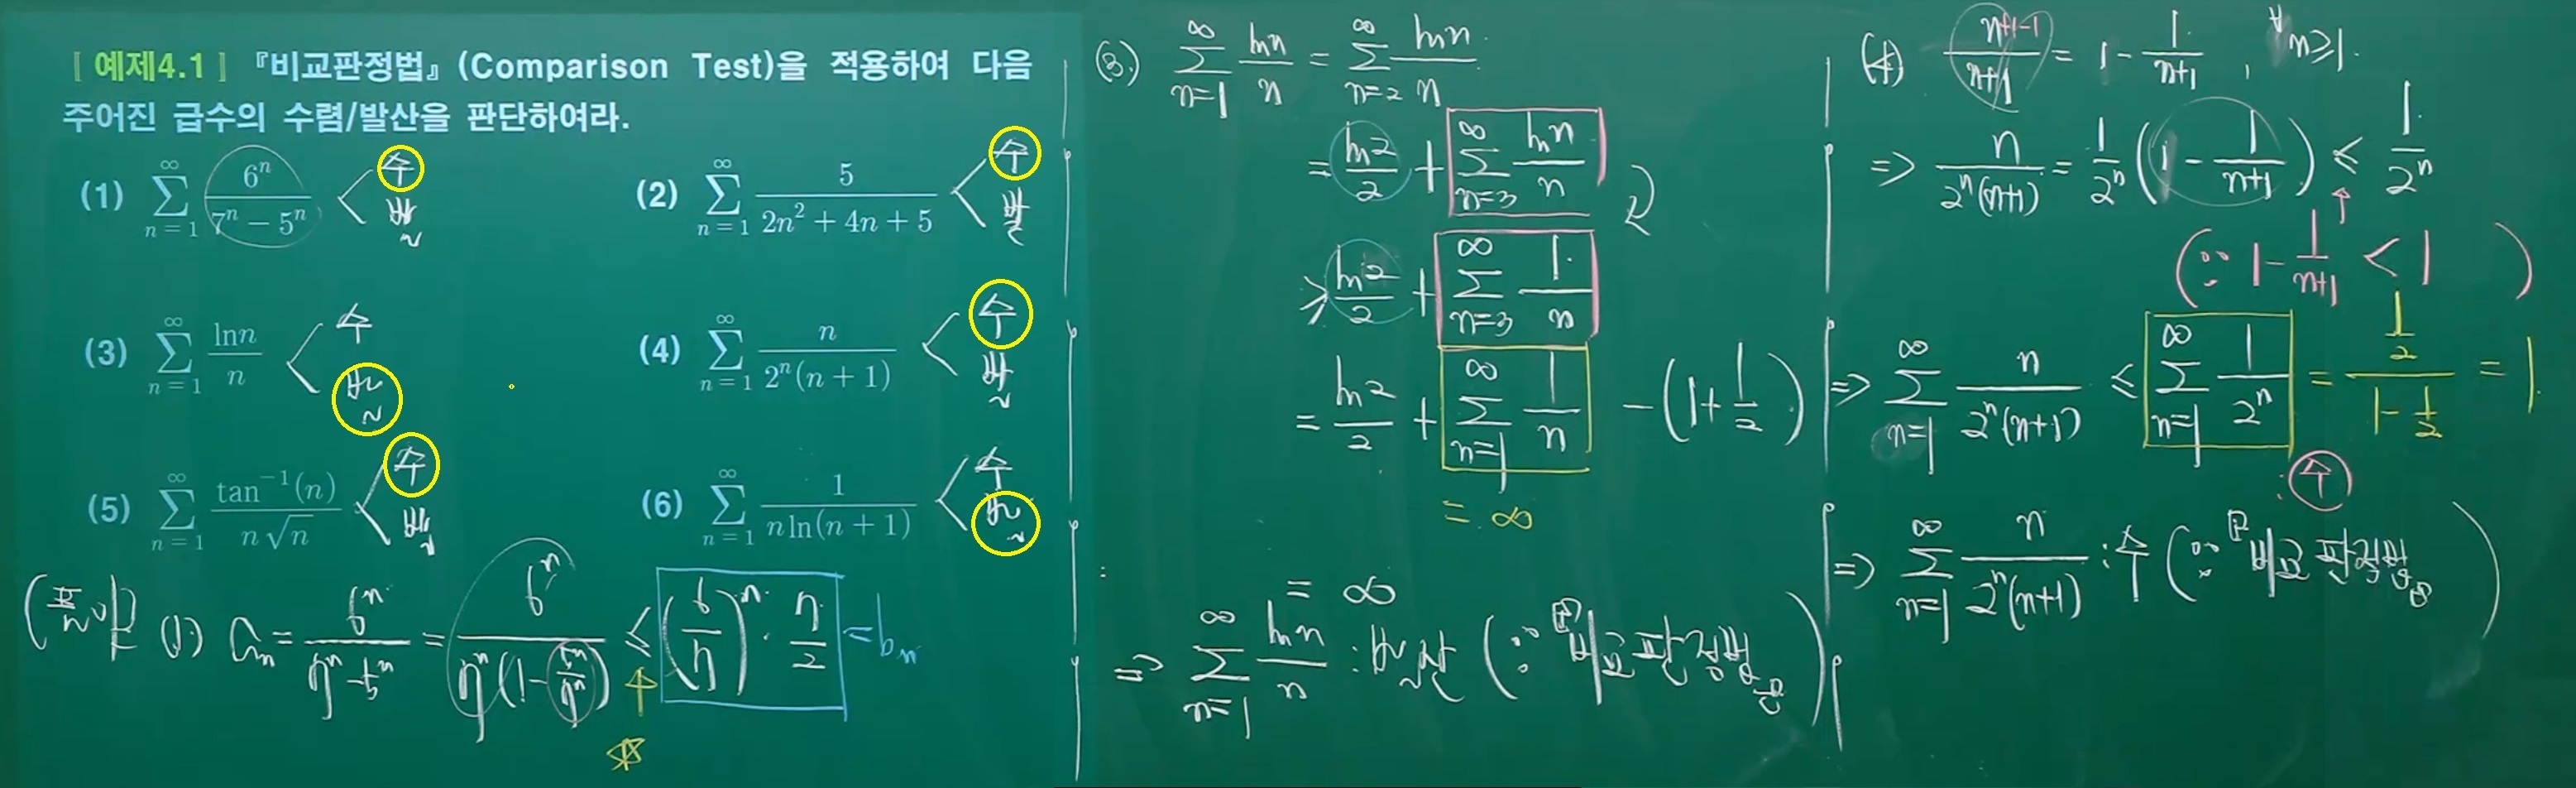 [ 예제4.1 ] 『비교판정법』(Comparison Test)을 적용하여 다음
주어진 급수의 수렴/발산을 판단하여라.
(1) ∑_{n=1}^{∞} 6^n/(7^n − 5^n) < 수 발
(2) ∑_{n=1}^{∞} 5/(2n² + 4n + 5) < 수 발
(3) ∑_{n=1}^{∞} lnn/n < 수 발
(4) ∑_{n=1}^{∞} n/(2^n(n + 1)) < 수 발
(5) ∑_{n=1}^{∞} tan^{-1}(n)/(n√n) < 수 발
(6) ∑_{n=1}^{∞} 1/(n ln(n + 1)) < 수 발
(풀이) (1) a_n = 6^n/(7^n − 5^n) = 6^n/(7^n(1 − 5^n/7^n)) ≤ (6/7)^n · 7/2 = b_n
(3) ∑_{n=1}^{∞} lnn/n = ∑_{n=2}^{∞} lnn/n
= ln2/2 + ∑_{n=3}^{∞} lnn/n
> ln2/2 + ∑_{n=3}^{∞} 1/n
= ln2/2 + ∑_{n=1}^{∞} 1/n − (1 + 1/2)
= ∞
= ∞
⇒ ∑_{n=1}^{∞} lnn/n : 발산 (∵ 『비교판정법』)
(4) n+1−1/n+1 = 1 − 1/n+1 , ∀n≥1.
⇒ n/(2^n(n+1)) = 1/2^n (1 − 1/n+1) ≤ 1/2^n
(∵ 1 − 1/n+1 < 1)
⇒ ∑_{n=1}^{∞} n/(2^n(n+1)) ≤ ∑_{n=1}^{∞} 1/2^n = (1/2)/(1 − 1/2) = 1
: 수
⇒ ∑_{n=1}^{∞} n/(2^n(n+1)) : 수 (∵ 『비교판정법』)